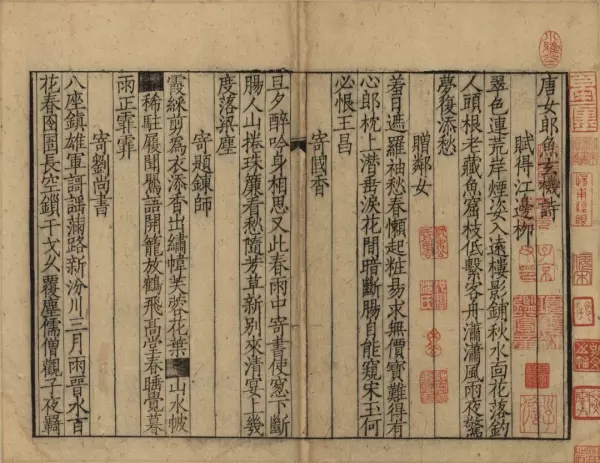 唐女郎魚玄機詩
賦得江邊柳
翠色連荒岸煙姿入遠樓影鋪秋水面花落釣
人頭根老藏魚窟枝低繫客舟瀟瀟風雨夜驚
夢復添愁
贈鄰女
羞日遮羅袖愁春懶起粧易求無價寶難得有
心郎枕上潛垂淚花間暗斷腸自能窺宋玉何
必恨王昌
寄國香
旦夕醉吟身相思又此春雨中寄書使窻下斷
腸人山捲珠簾看愁隨芳草新別來清宴上幾
度落梁塵
寄題鍊師
霞綵剪為衣添香出繡幃芙蓉花葉山水帔
稀駐履聞鶯語開籠放鶴飛高堂春睡覺暮
雨正霏霏
寄劉尚書
八座鎮雄軍謌謠滿路新汾川三月雨晉水百
花春囹圄長空鎖干戈久覆塵儒僧觀子夜羈